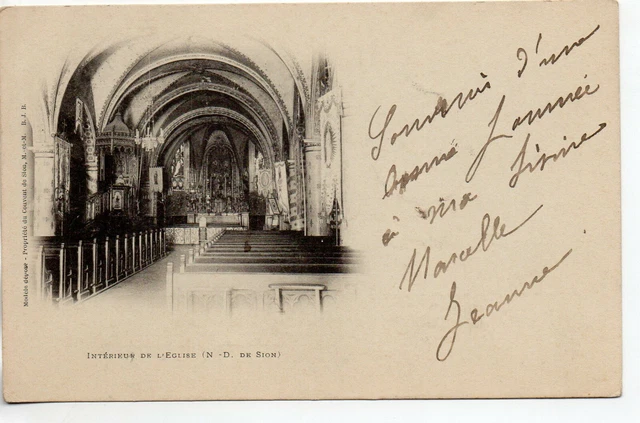 Modèle déposé - Propriété du Couvent de Sion, M.-et-M. B. J. B.
INTÉRIEUR DE L'EGLISE (N -D. DE SION)
Souvenir d'une
bonne Journée
à ma
Marcelle
Jeanne